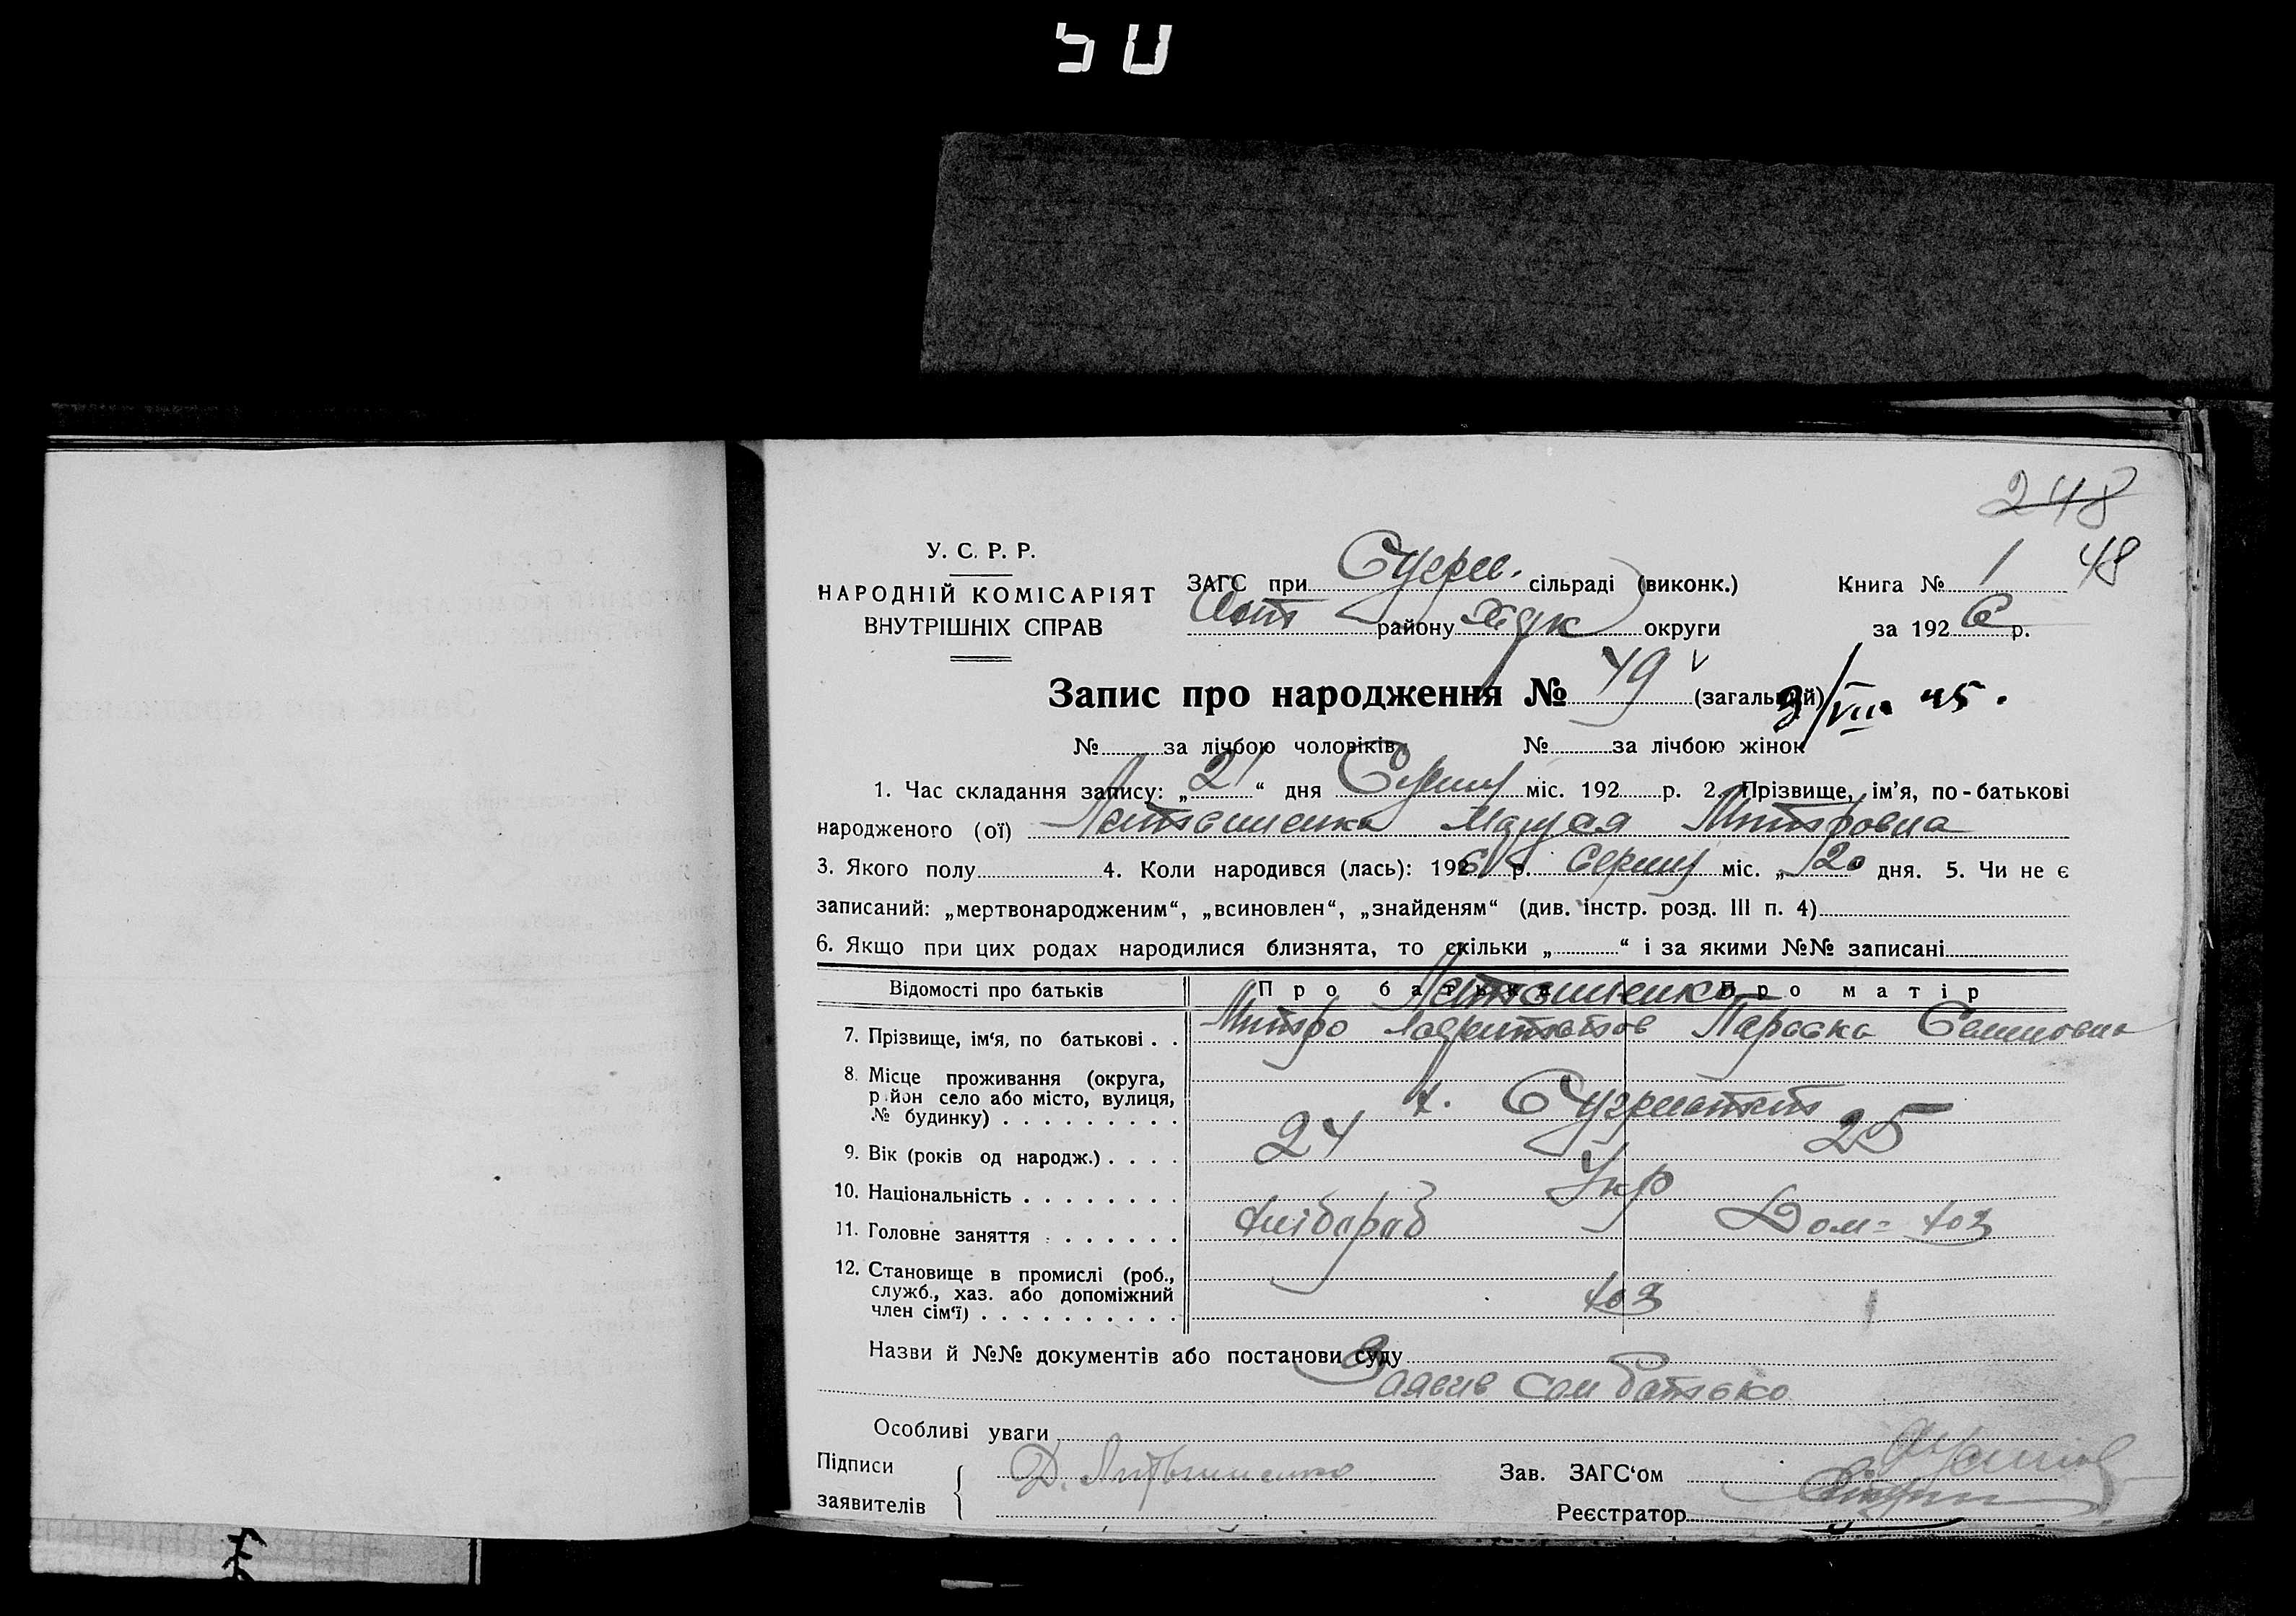 50
248
48
У. С. Р. Р.
НАРОДНІЙ КОМІСАРІЯТ
ВНУТРІШНІХ СПРАВ
ЗАГС при сільраді (виконк.)
району округи
Книга № 1
за 1926 р.
Запис про народження № 49 (загальний)
VIII 45.
№ за лічбою чоловіків, № за лічбою жінок
1. Час складання запису: „21“ дня Серпня міс. 192 р. 2. Прізвище, ім'я, по-батькові
народженого (ої) Маруся Митровна
3. Якого полу 4. Коли народився (лась): 1926 р. Серпня міс. „20 дня. 5. Чи не є
записаний: „мертвонародженим“, „всиновлен“, „знайденям“ (див. інстр. розд. III п. 4)
6. Якщо при цих родах народилися близнята, то скільки „ “ і за якими №№ записані
Відомості про батьків Про батька Про матір
7. Прізвище, ім'я, по батькові . . Митро Параска Семеновна
8. Місце проживання (округа,
район село або місто, вулиця,
№ будинку) . . . . . . . . . х.
9. Вік (років од народж.) . . . . 24 25
10. Національність . . . . . . . . Укр
11. Головне заняття . . . . . . . хлібороб Дом= хоз
12. Становище в промислі (роб.,
служб., хаз. або допоміжний
член сім'ї) . . . . . . . . . . хоз
Назви й №№ документів або постанови суду
Заявив сам батько
Особливі уваги
Підписи
заявителів
Д.
Зав. ЗАГС'ом
Реєстратор